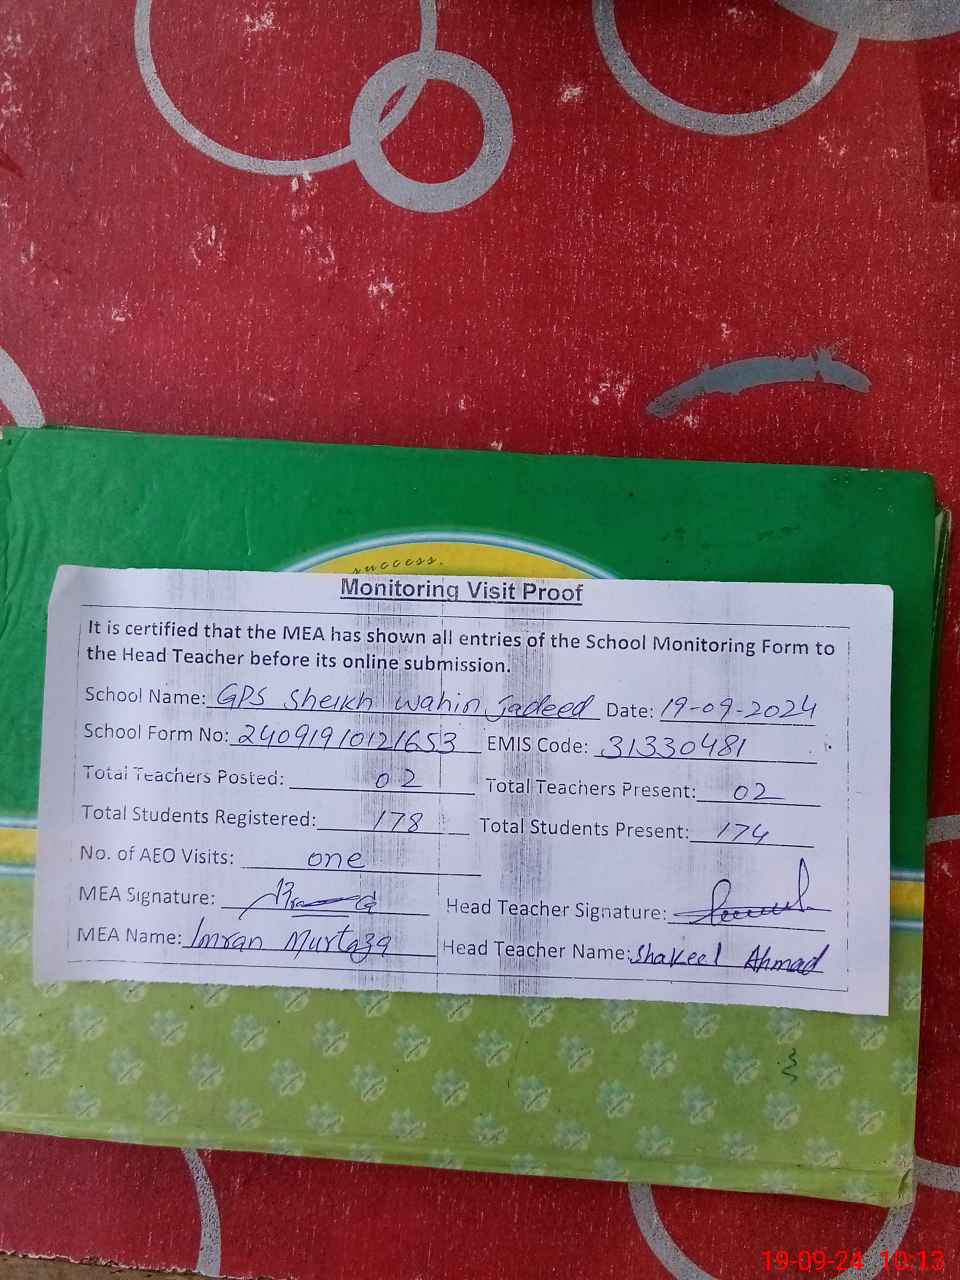 success.
Monitoring Visit Proof
It is certified that the MEA has shown all entries of the School Monitoring Form to
the Head Teacher before its online submission.
School Name: GPS Sheikh Wahin Jadeed Date: 19-09-2024
School Form No: 24091910121653 EMIS Code: 31330481
Total Teachers Posted: 02 Total Teachers Present: 02
Total Students Registered: 178 Total Students Present: 174
No. of AEO Visits: one
MEA Signature: Head Teacher Signature:
MEA Name: Imran Murtaza Head Teacher Name: Shakeel Ahmad
19-09-24 10:13